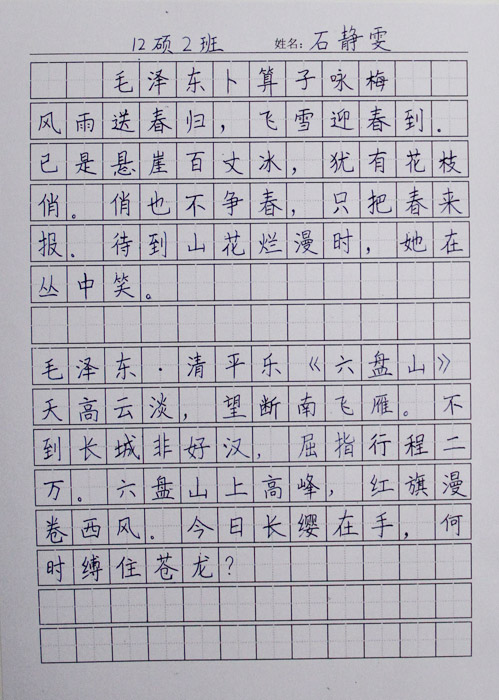 12硕2班 姓名：石静雯
毛泽东卜算子咏梅
风雨送春归，飞雪迎春到．
已是悬崖百丈冰，犹有花枝
俏。俏也不争春，只把春来
报．待到山花烂漫时，她在
丛中笑。
毛泽东·清平乐《六盘山》
天高云淡，望断南飞雁。不
到长城非好汉，屈指行程二
万。六盘山上高峰，红旗漫
卷西风．今日长缨在手，何
时缚住苍龙？